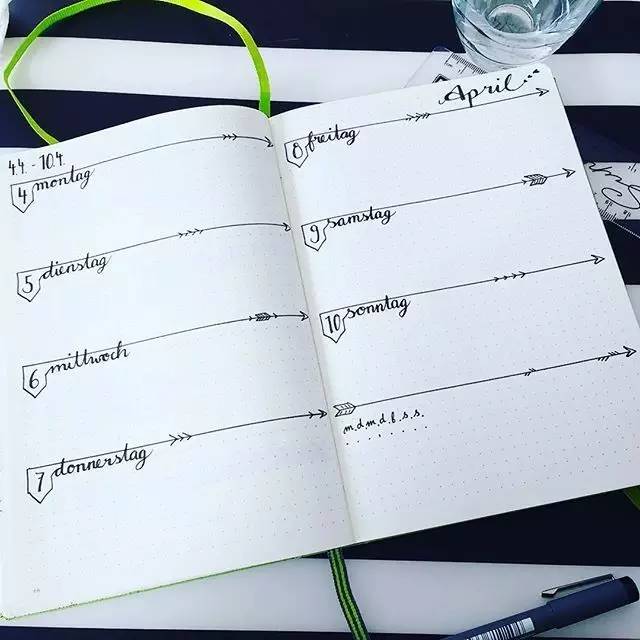 4.4. - 10.4.
4 montag
5 dienstag
6 mittwoch
7 donnerstag
April
8 freitag
9 samstag
10 sonntag
m.d.m.d.f.s.s.